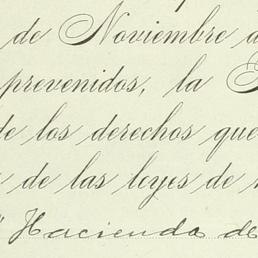 de Noviembre d
prevenidos, la
de los derechos que
de las leyes de
Hacienda de